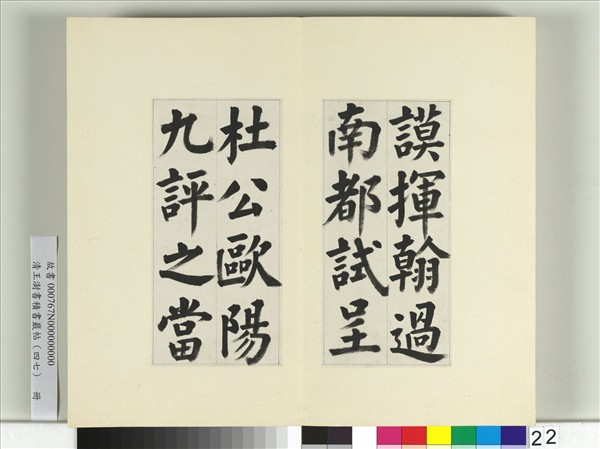 謨揮翰過
南都試呈
杜公歐陽
九評之當
故書000767N000000000
清王澍書積書巖帖（四七） 冊
22